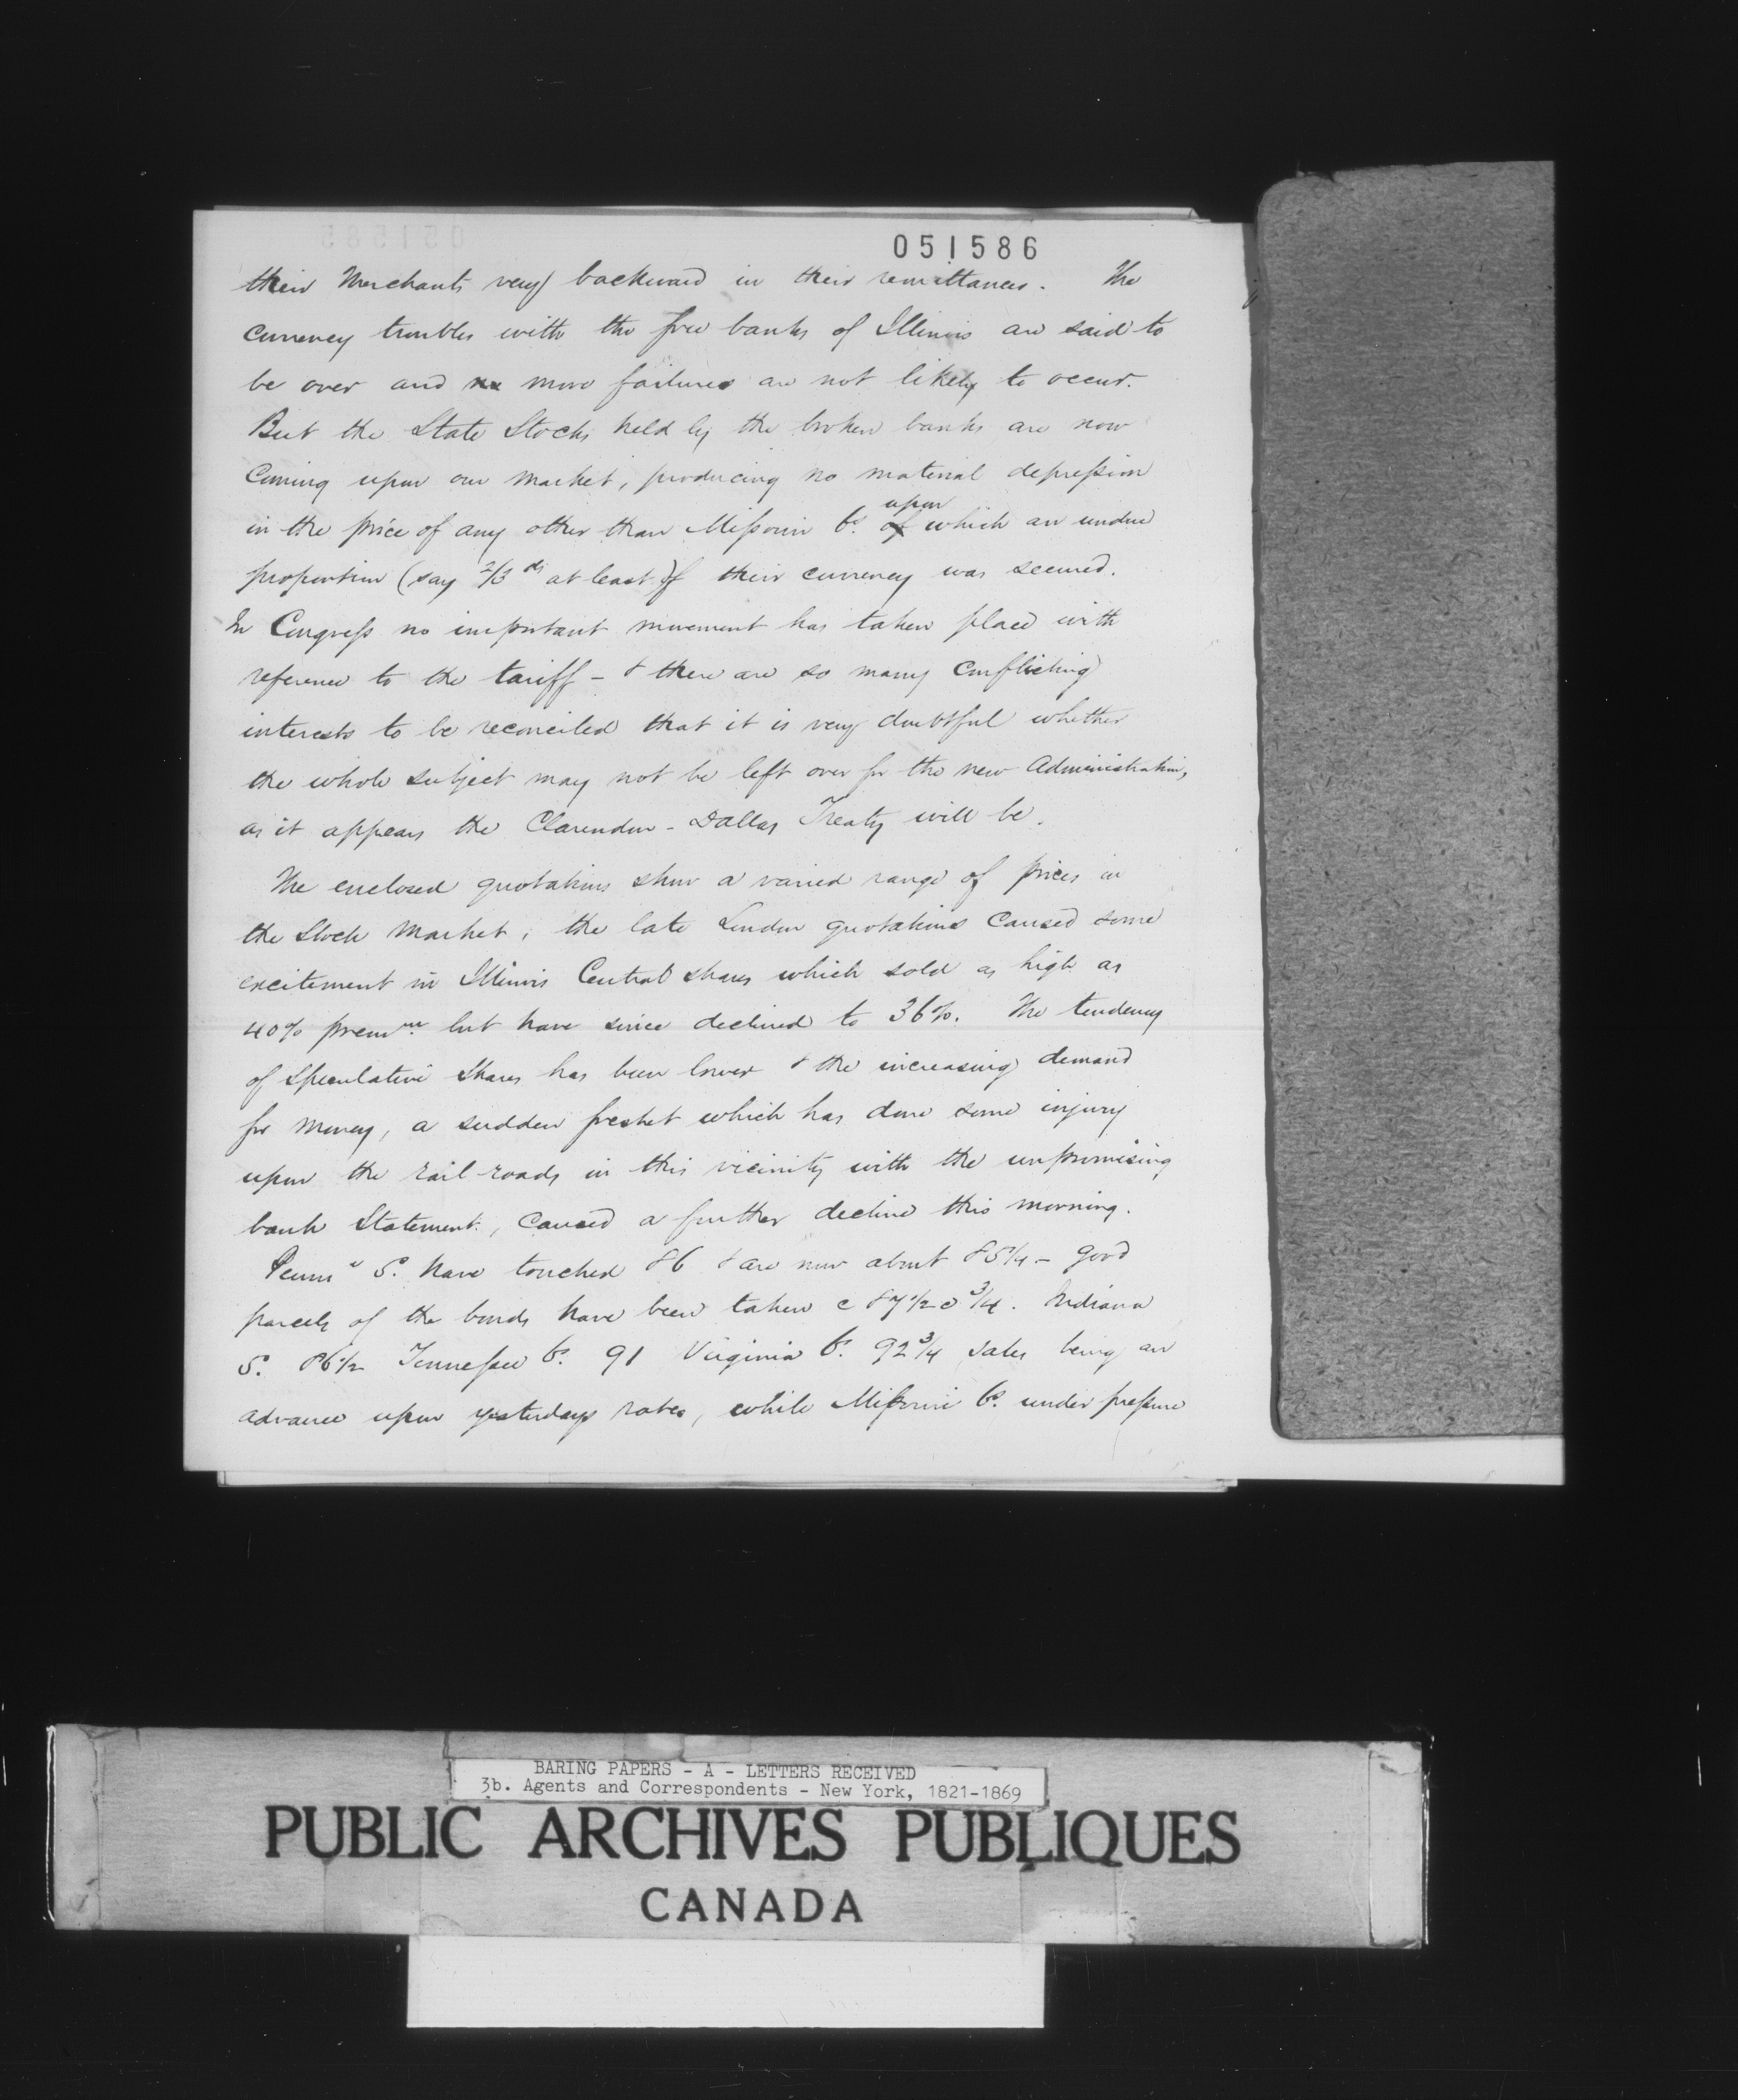 051586
their Merchants very backward in their remittances. The
currency troubles with the free banks of Illinois are said to
be over and no more failures are not likely to occur.
But the State Stocks held by the broken banks are now
coming upon our market, producing no material depression
upon
in the price of any other than Missouri 6s. of which an undue
proportion (say 2/3 ds at least) of their currency was secured.
In Congress no important movement has taken place with
reference to the tariff - & there are so many conflicting
interests to be reconciled that it is very doubtful whether
the whole subject may not be left over for the new Administration,
as it appears the Clarendon - Dallas Treaty will be.
The enclosed quotations show a varied range of prices in
the Stock Market; the late London quotations caused some
excitement in Illinois Central shares which sold as high as
40% premm. but have since declined to 36%. The tendency
of Speculative Shares has been lower & the increasing demand
for money, a sudden freshet which has done some injury
upon the rail-roads in this vicinity with the unpromising
bank Statement, caused a further decline this morning.
Penna 5s. have touched 86 & are now about 85 1/4 - good
parcels of the bonds have been taken @ 87 1/2 @ 3/4. Indiana
5s. 86 1/2 Tennessee 6s. 91 Virginia 6s. 92 3/4 sales being an
advance upon yesterdays rates, while Missouri 6s. under pressure
BARING PAPERS - A - LETTERS RECEIVED
3b. Agents and Correspondents - New York, 1821-1869
PUBLIC ARCHIVES PUBLIQUES
CANADA